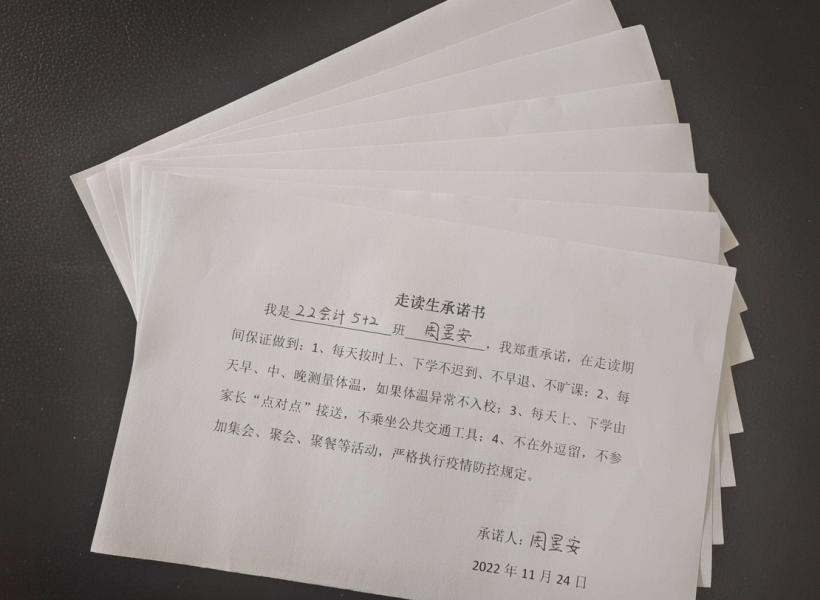 走读生承诺书
我是22会计 5+2班周昱安，我郑重承诺，在走读期
间保证做到：1、每天按时上、下学不迟到、不早退、不旷课；2、每
天早、中、晚测量体温，如果体温异常不入校；3、每天上、下学由
家长“点对点”接送，不乘坐公共交通工具；4、不在外逗留，不参
加集会、聚会、聚餐等活动，严格执行疫情防控规定。
承诺人：周昱安
2022 年 11 月 24 日